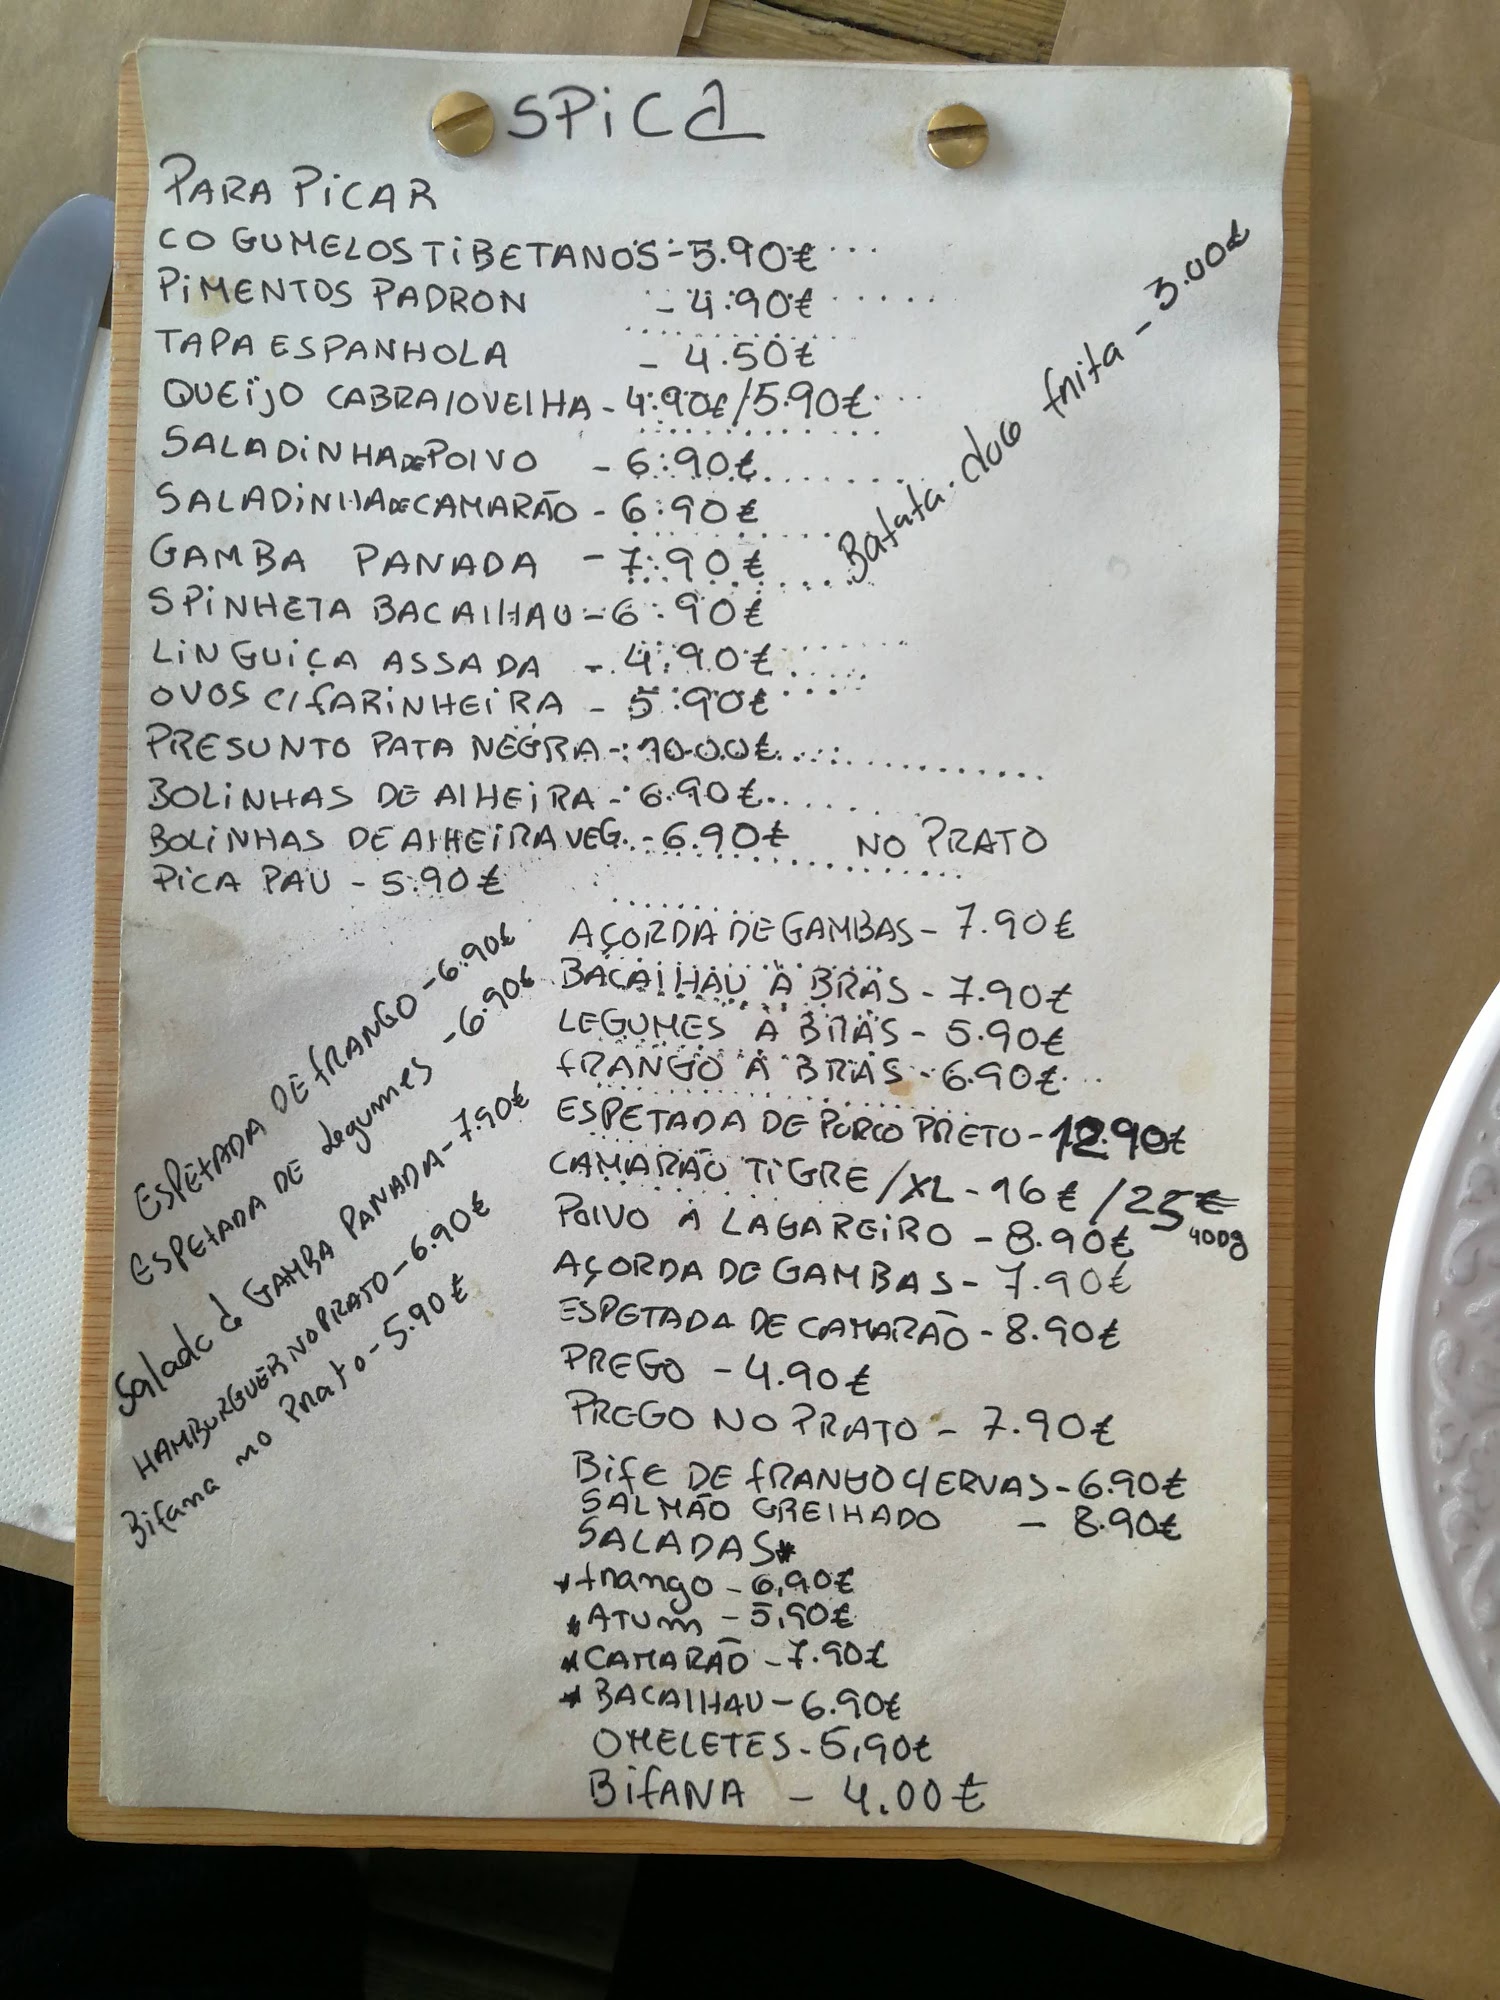 SPICA
PARA PICAR
COGUMELOS TIBETANOS - 5.90€
PIMENTOS PADRON - 4.90€
TAPA ESPANHOLA - 4.50€
QUEIJO CABRA/OVELHA - 4.90€/5.90€
SALADINHA DE POLVO - 6.90€
SALADINHA DE CAMARÃO - 6.90€
GAMBA PANADA - 7.90€
SPINHETA BACALHAU - 6.90€
LINGUIÇA ASSADA - 4.90€
OVOS C/FARINHEIRA - 5.90€
PRESUNTO PATA NEGRA - 10.00€
BOLINHAS DE ALHEIRA - 6.90€
BOLINHAS DE ALHEIRA VEG. - 6.90€
PICA PAU - 5.90€
Batata doce frita - 3.00€
ESPETADA DE FRANGO - 6.90€
ESPETADA DE Legumes - 6.90€
Salada de GAMBA PANADA - 7.90€
HAMBURGUER NO PRATO - 6.90€
Bifana no Prato - 5.90€
NO PRATO
AÇORDA DE GAMBAS - 7.90€
BACALHAU À BRÁS - 7.90€
LEGUMES À BRÁS - 5.90€
FRANGO À BRÁS - 6.90€
ESPETADA DE PORCO PRETO - 12.90€
CAMARÃO TIGRE/XL - 16€/25€
400g
POLVO À LAGAREIRO - 8.90€
AÇORDA DE GAMBAS - 7.90€
ESPETADA DE CAMARÃO - 8.90€
PREGO - 4.90€
PREGO NO PRATO - 7.90€
BIFE DE FRANGO C/ERVAS - 6.90€
SALMÃO GRELHADO - 8.90€
SALADAS*
* frango - 6,90€
* ATUM - 5,90€
* CAMARÃO - 7.90€
* BACALHAU - 6.90€
OMELETES - 5,90€
BIFANA - 4.00€